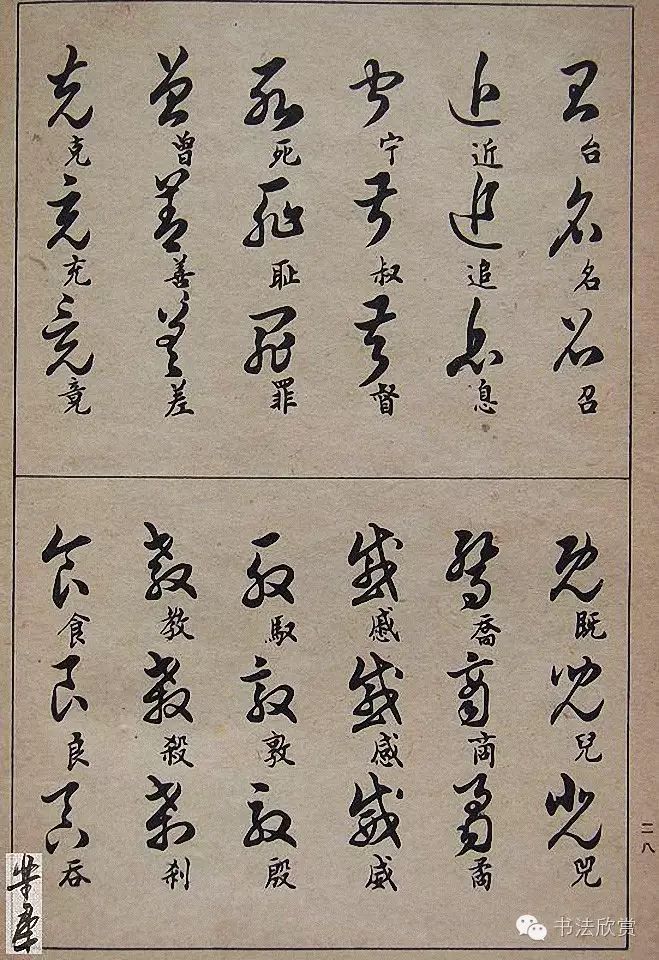 台 名 召
近 追 息
宁 叔 督
死 耻 罪
曾 善 差
克 充 竟
既 兒 兕
喬 商 矞
戚 感 威
馭 敦 殷
教 殺 刹
食 良 吞
二八
书法欣赏